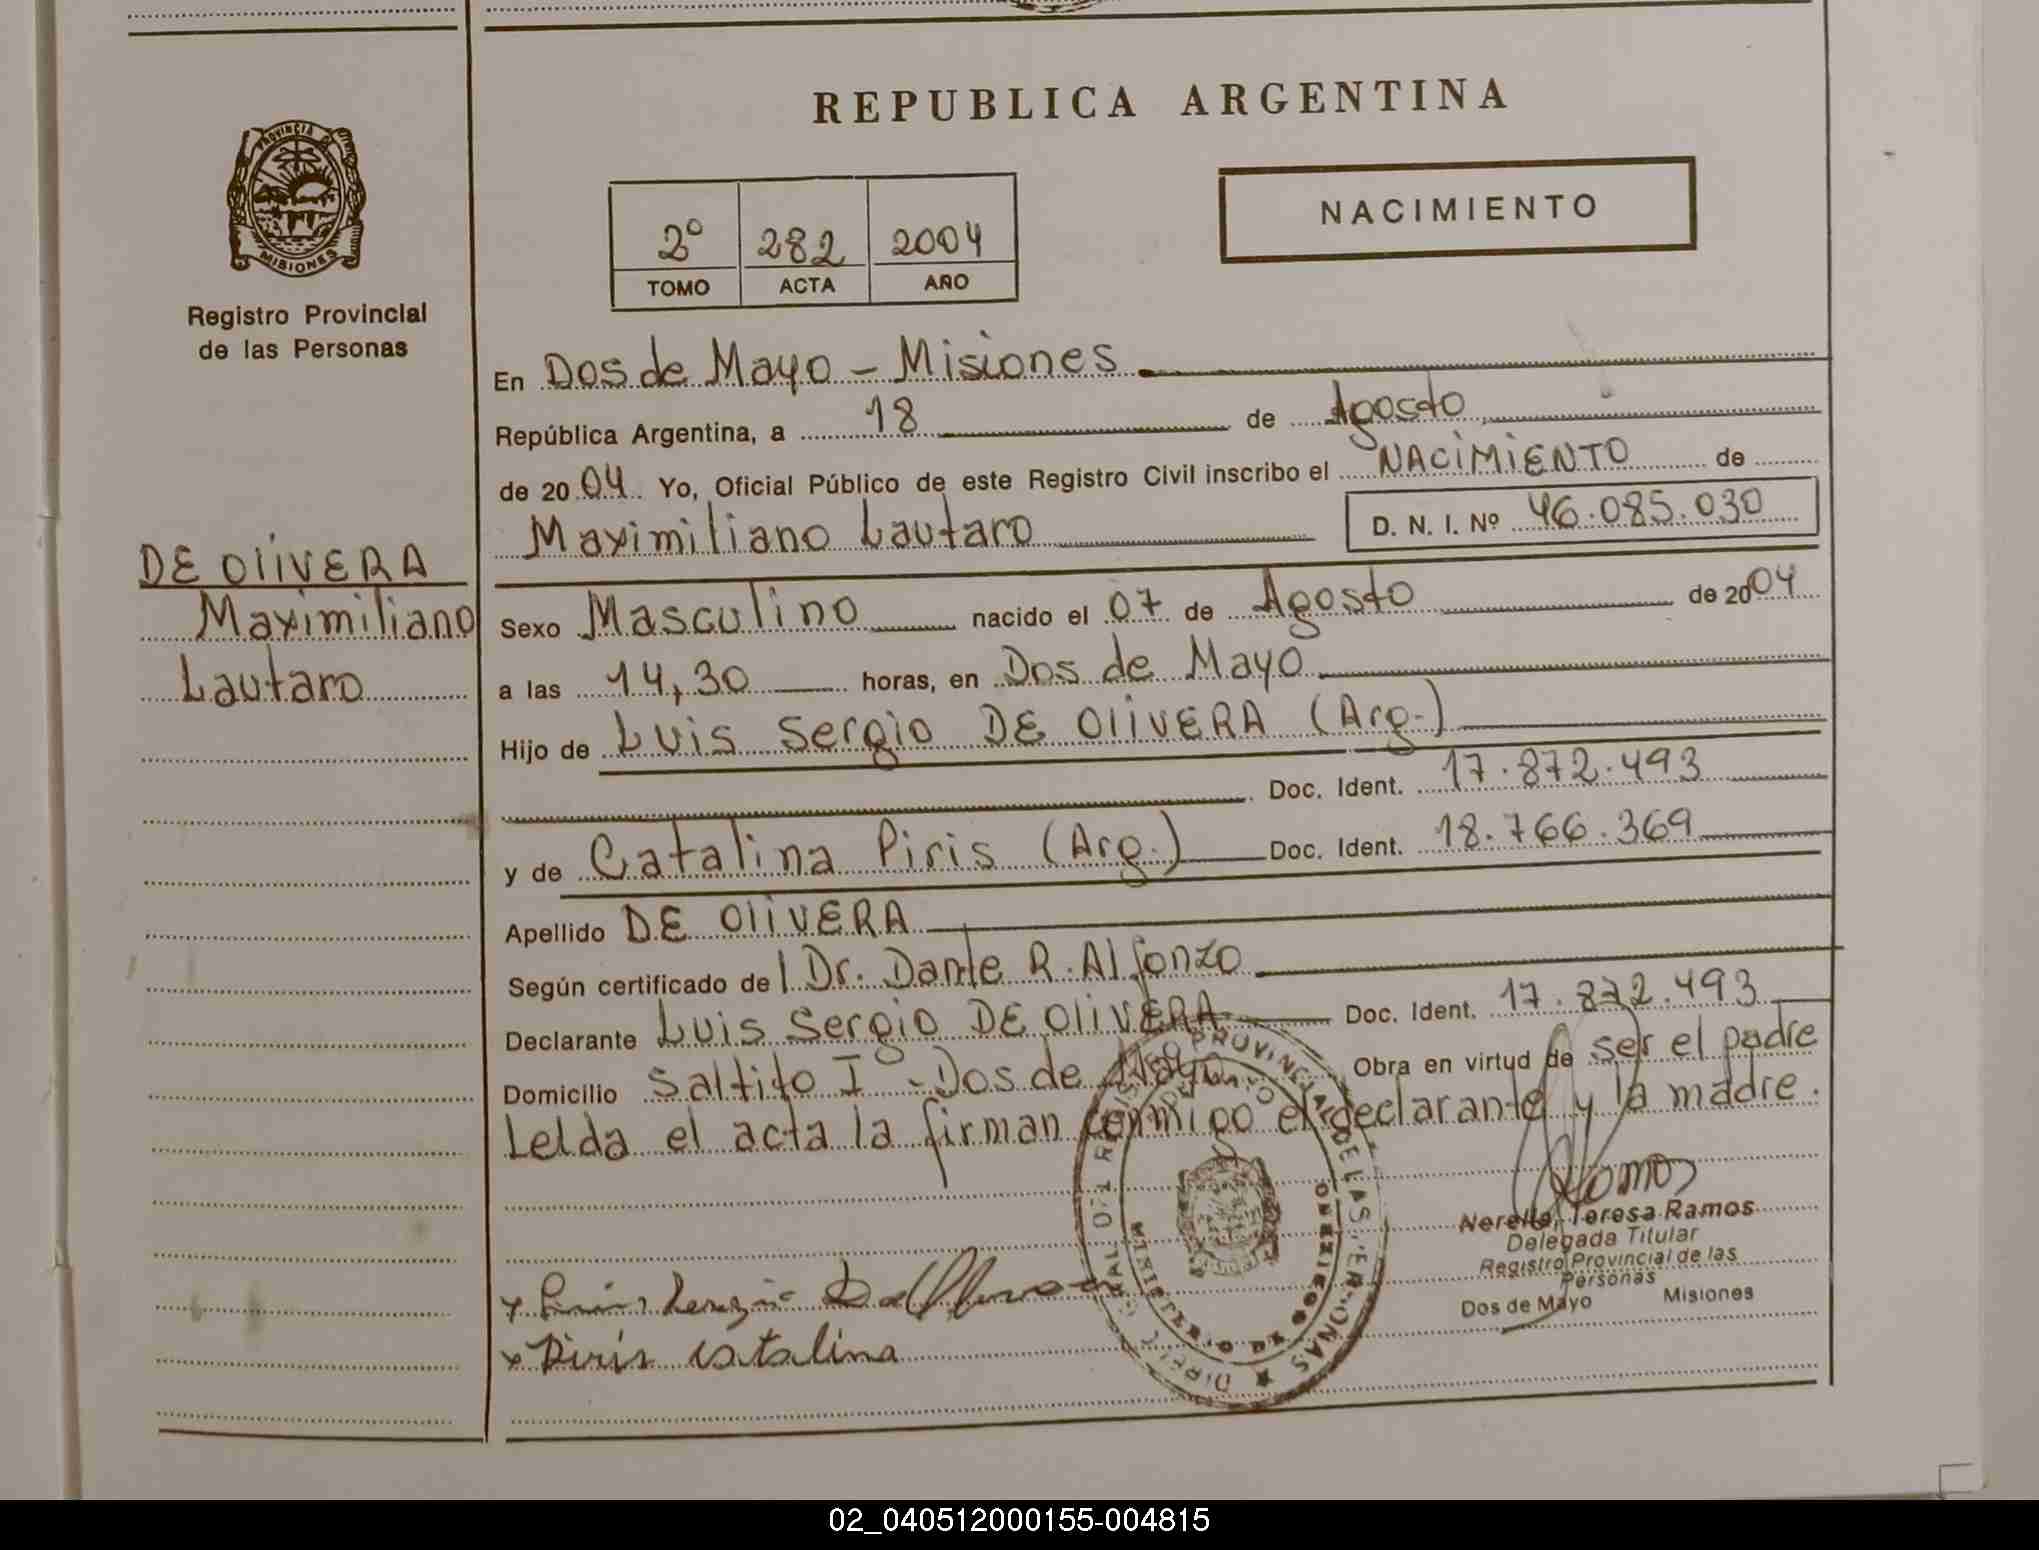 REPUBLICA ARGENTINA
PROVINCIA DE
MISIONES
Registro Provincial
de las Personas
2º 282 2004
TOMO ACTA AÑO
NACIMIENTO
En Dos de Mayo - Misiones
República Argentina, a 18 de Agosto
de 2004 Yo, Oficial Público de este Registro Civil inscribo el NACIMIENTO de
Maximiliano Lautaro D. N. I. Nº 46.085.030
DE OlivERA
Maximiliano
Lautaro
Sexo Masculino nacido el 07 de Agosto de 2004
a las 14,30 horas, en Dos de Mayo
Hijo de Luis Sergio DE OlivERA (Arg.)
Doc. Ident. 17.872.493
y de Catalina Piris (Arg.) Doc. Ident. 18.766.369
Apellido DE OlivERA
Según certificado del Dr. Dante R. Alfonzo
Declarante Luis Sergio DE OlivERA Doc. Ident. 17.872.493
Domicilio Saltito Iº - Dos de Mayo Obra en virtud de ser el padre
Leída el acta la firman conmigo el declarante y la madre.
Nerella, Teresa Ramos
Delegada Titular
Registro Provincial de las
Personas
Dos de Mayo Misiones
Piris Catalina
02_040512000155-004815